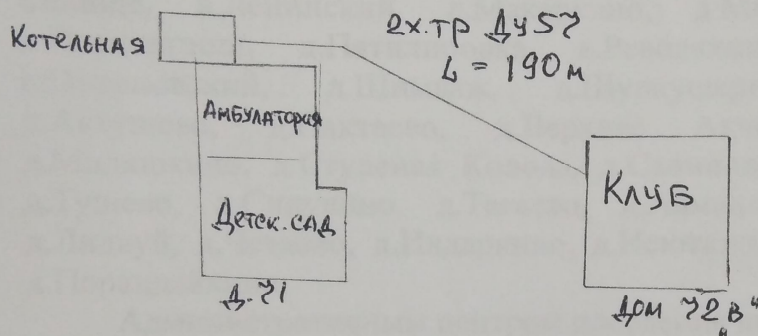 Котельная
2х.тр Ду57
L = 190 м
Амбулатория
Детск. сад
Д. 71
Клуб
Дом 72 "в"